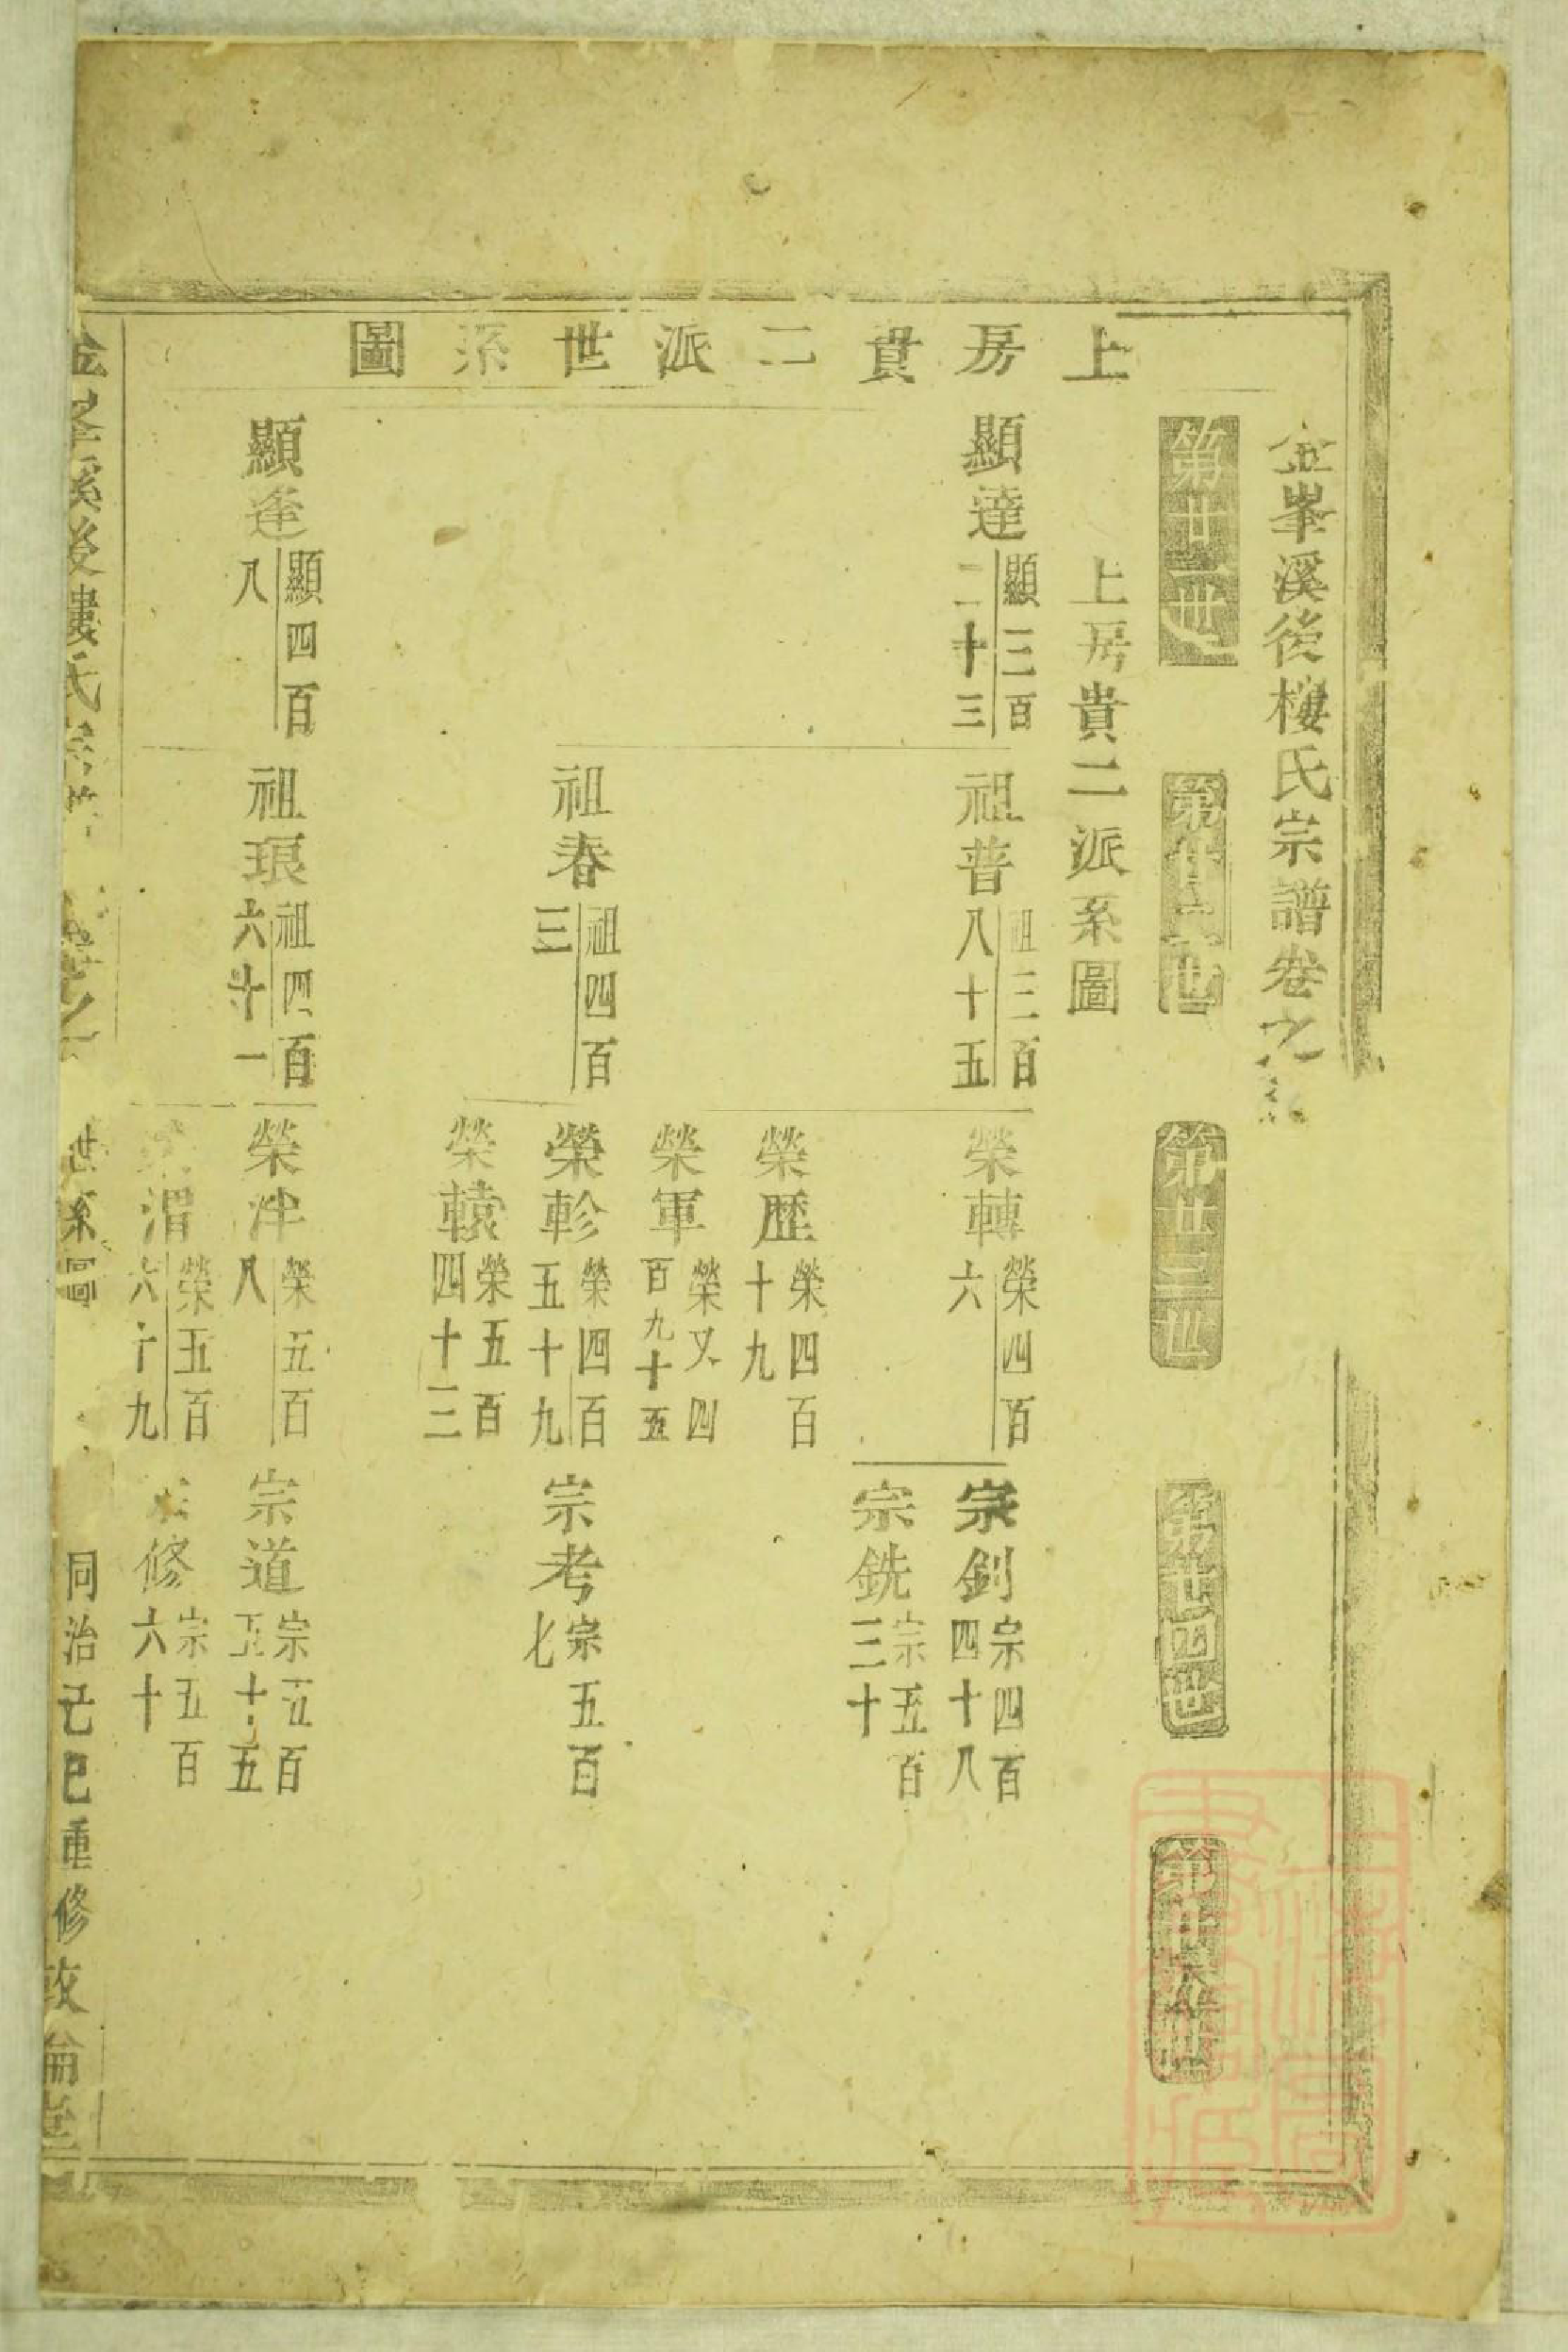 上房貴二派世系圖
金峯溪後樓氏宗譜卷之
第廿一世
第廿二世
第廿三世
第廿四世
第廿五世
上房貴二派系圖
顯達 顯三百二十三
祖普 祖三百八十五
榮轉 榮四百六
宗釗 宗四百四十八
宗銑 宗五百三十
榮歷 榮四百十九
榮軍 榮又四百九十五
祖春 祖四百三
榮軫 榮四百五十九
宗考 宗五百七
榮轅 榮五百四十三
顯逢 顯四百八
祖琅 祖四百六十一
榮津 榮五百八
宗道 宗五百五十五
渭 榮五百六十九
修 宗五百六十
金峯溪後樓氏宗譜 卷之 世系圖 同治己巳重修 敦倫堂